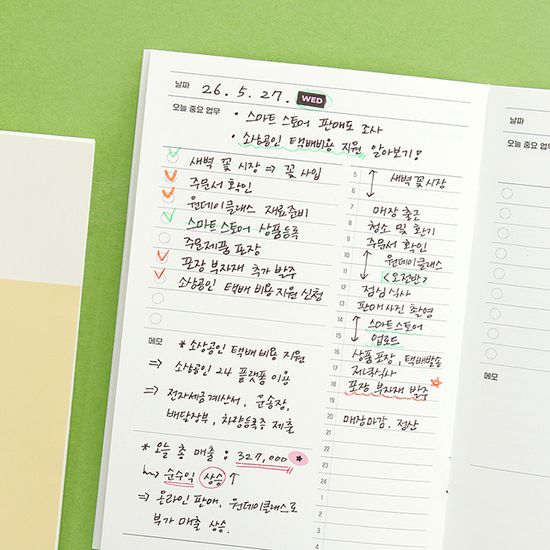 날짜 26. 5. 27. WED
오늘 중요 업무 • 스마트 스토어 판매도 조사
• 소상공인 택배비용 지원 알아보기!
새벽 꽃 시장 ⇒ 꽃 사입
주문서 확인
원데이클래스 재료준비
스마트스토어 상품등록
주문제품 포장
포장 부자재 추가 발주
소상공인 택배 비용 지원 신청
메모 * 소상공인 택배비용 지원
⇒ 소상공인 24 플랫폼 이용
⇒ 전자세금계산서, 운송장,
배달장부, 차량등록증 제출
* 오늘 총 매출 : 327,000 ★
↳ 순수익 상승 ↑
⇒ 온라인 판매, 원데이클래스로
부가 매출 상승.
5 새벽 꽃시장
6
7 매장 출근
8 청소 및 환기
9 주문서 확인
10 원데이클래스
11 <오전반>
12 점심식사
13 판매사진 촬영
14 스마트스토어
15 업로드
16 상품포장, 택배발송
17 저녁식사
18 포장 부자재 발주
19
20 매장마감, 정산
21
22
23
24
1
2
3
4
날짜
오늘 중요 업무
메모